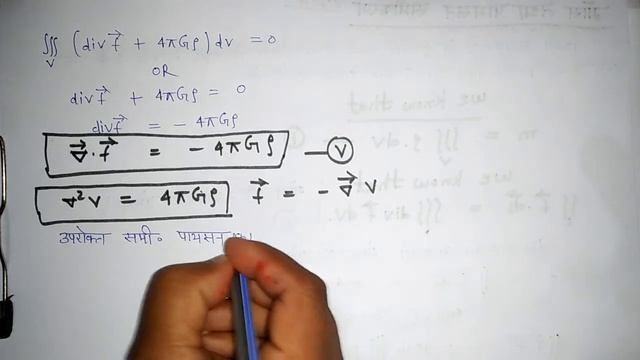 ∭ᵥ (div f⃗ + 4πGρ) dv = 0
OR
div f⃗ + 4πGρ = 0
div f⃗ = - 4πGρ
∇⃗. f⃗ = - 4πGρ — Ⓥ
∇²V = 4πGρ f⃗ = - ∇⃗ V
उपरोक्त समी० पायसन